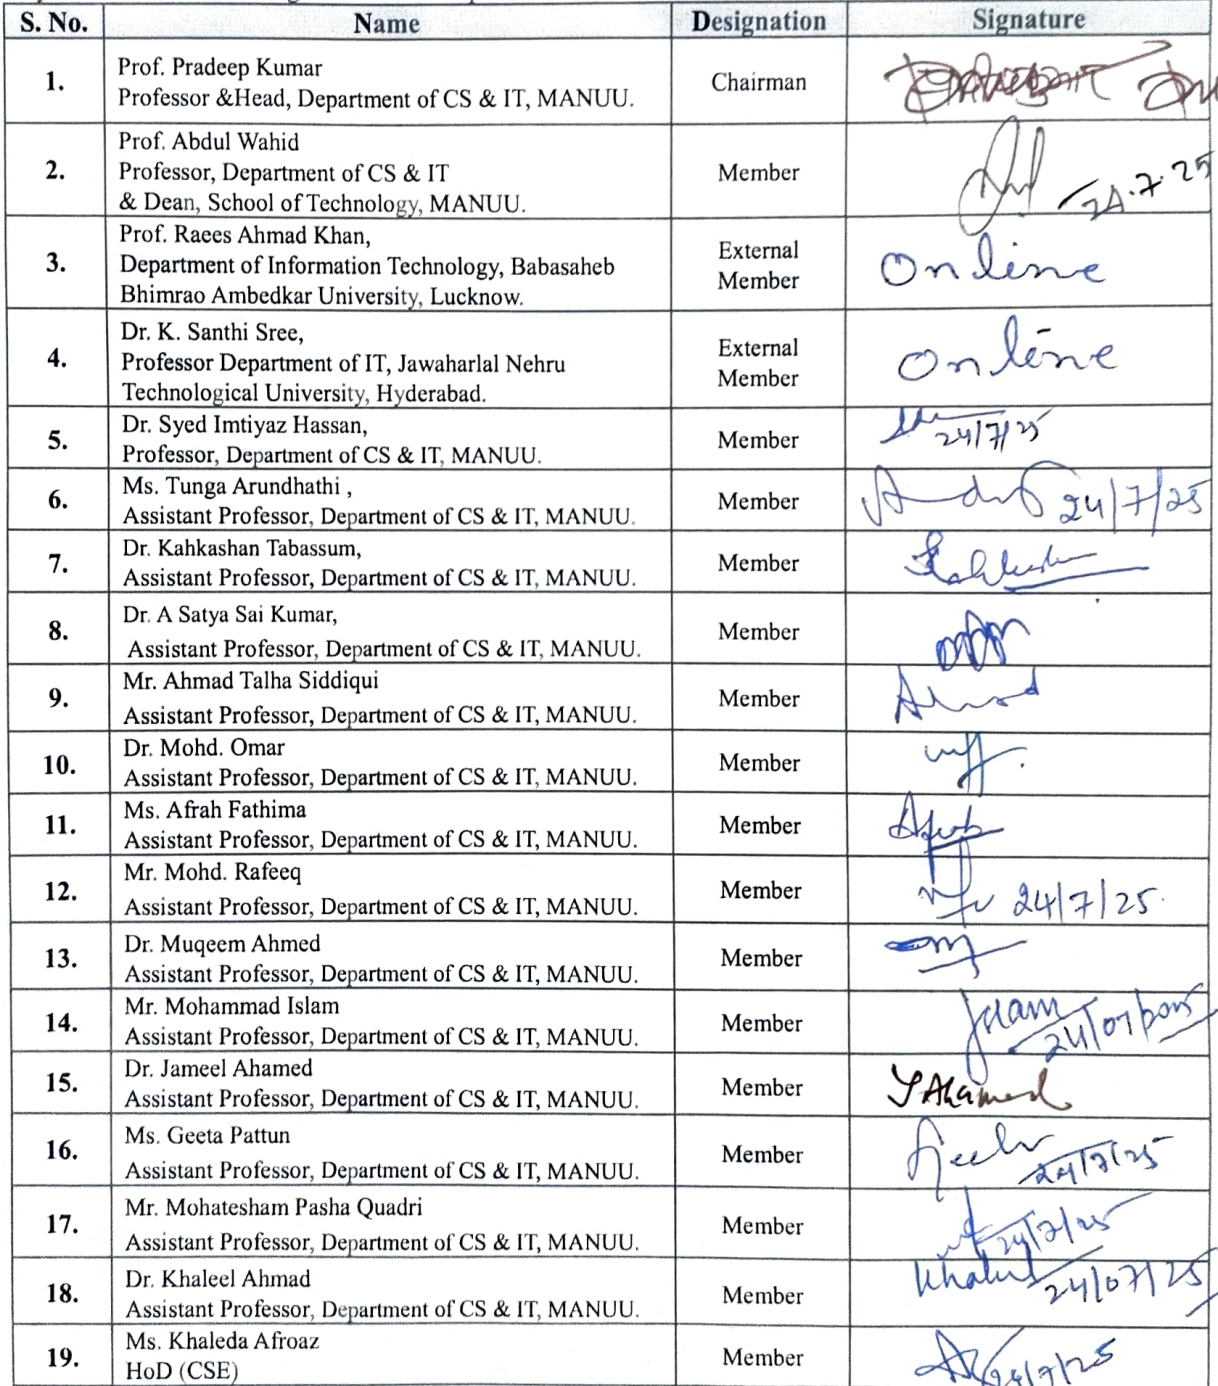 S. No. Name Designation Signature
1. Prof. Pradeep Kumar
Professor &Head, Department of CS & IT, MANUU. Chairman
2. Prof. Abdul Wahid
Professor, Department of CS & IT
& Dean, School of Technology, MANUU. Member 24.7.25
3. Prof. Raees Ahmad Khan,
Department of Information Technology, Babasaheb
Bhimrao Ambedkar University, Lucknow. External
Member Online
4. Dr. K. Santhi Sree,
Professor Department of IT, Jawaharlal Nehru
Technological University, Hyderabad. External
Member Online
5. Dr. Syed Imtiyaz Hassan,
Professor, Department of CS & IT, MANUU. Member 24/7/25
6. Ms. Tunga Arundhathi ,
Assistant Professor, Department of CS & IT, MANUU. Member 24/7/25
7. Dr. Kahkashan Tabassum,
Assistant Professor, Department of CS & IT, MANUU. Member
8. Dr. A Satya Sai Kumar,
Assistant Professor, Department of CS & IT, MANUU. Member
9. Mr. Ahmad Talha Siddiqui
Assistant Professor, Department of CS & IT, MANUU. Member
10. Dr. Mohd. Omar
Assistant Professor, Department of CS & IT, MANUU. Member
11. Ms. Afrah Fathima
Assistant Professor, Department of CS & IT, MANUU. Member
12. Mr. Mohd. Rafeeq
Assistant Professor, Department of CS & IT, MANUU. Member 24/7/25.
13. Dr. Muqeem Ahmed
Assistant Professor, Department of CS & IT, MANUU. Member
14. Mr. Mohammad Islam
Assistant Professor, Department of CS & IT, MANUU. Member 24/07/2025
15. Dr. Jameel Ahamed
Assistant Professor, Department of CS & IT, MANUU. Member JAhamed
16. Ms. Geeta Pattun
Assistant Professor, Department of CS & IT, MANUU. Member 24/7/25
17. Mr. Mohatesham Pasha Quadri
Assistant Professor, Department of CS & IT, MANUU. Member 24/7/25
18. Dr. Khaleel Ahmad
Assistant Professor, Department of CS & IT, MANUU. Member 24/07/25
19. Ms. Khaleda Afroaz
HoD (CSE) Member 24/7/25